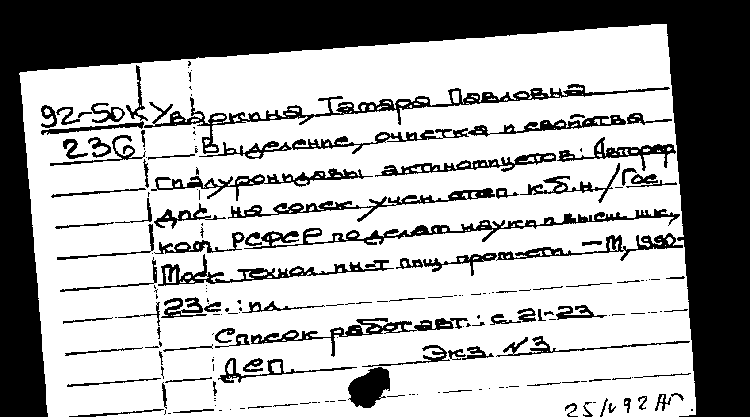 92-50К Уваркина, Тамара Павловна
236 Выделение, очистка и свойства
гиалуронидазы актиномицетов: Автореф.
дис. на соиск. учен. степ. к.б.н. / Гос.
ком. РСФСР по делам науки и высш. шк.,
Моск. технол. ин-т пищ. пром-сти. — М., 1990-
23с. : ил.
Список работ авт.: с. 21-23
Деп. Экз. N 3.
25/V 92